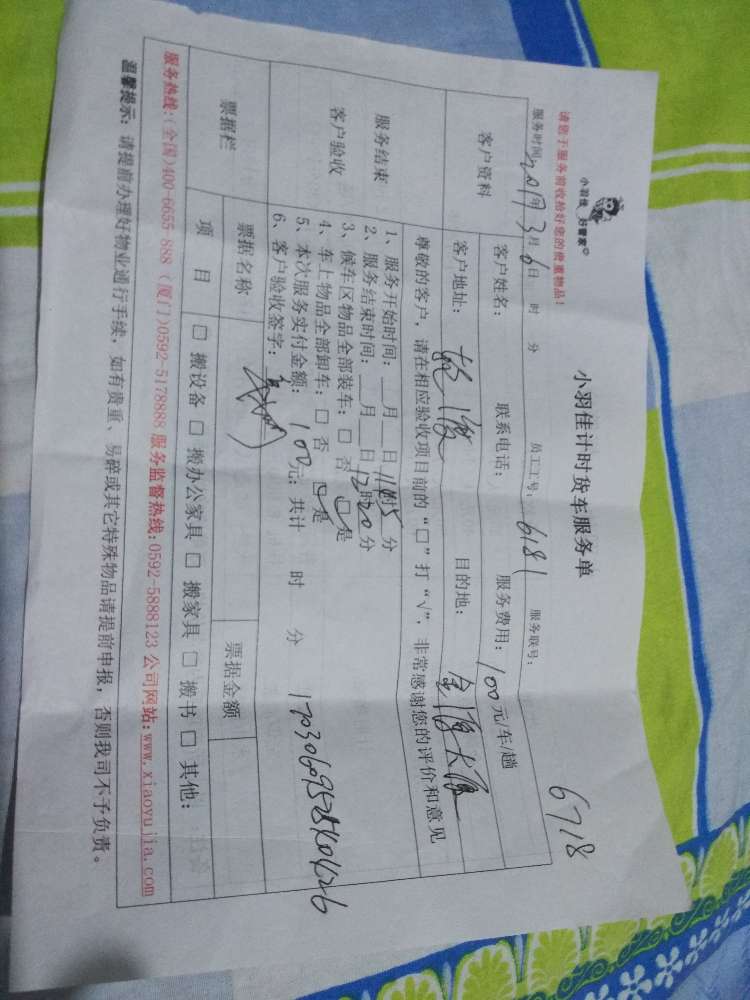 请您于服务前收拾好您的贵重物品！
小羽佳 好管家
小羽佳计时货车服务单
6718
服务时间：2017年3月6日 时 分 员工工号：6181 服务联号：
客户资料
客户姓名： 联系电话： 服务费用：100元/车/趟
客户地址： 目的地：
尊敬的客户，请在相应验收项目前的“□”打“√”，非常感谢您的评价和意见
服务结束
客户验收
1、服务开始时间：__月__日11时45分
2、服务结束时间：__月__日12时20分
3、候车区物品全部装车：□ 否 ☑是
4、车上物品全部卸车：□ 否 ☑是
5、本次服务实付金额：100元；共计 时 分
6、客户验收签字：
票据栏
票据名称 票据金额
项 目 □ 搬设备 □ 搬办公家具 □ 搬家具 □ 搬书 □ 其他：
服务热线：(全国)400-6655-888 (厦门)0592-5178888 服务监督热线：0592-5888123 公司网站：www.xiaoyujia.com
温馨提示：请提前办理好物业通行手续，如有贵重、易碎或其它特殊物品请提前申报，否则我司不予负责。